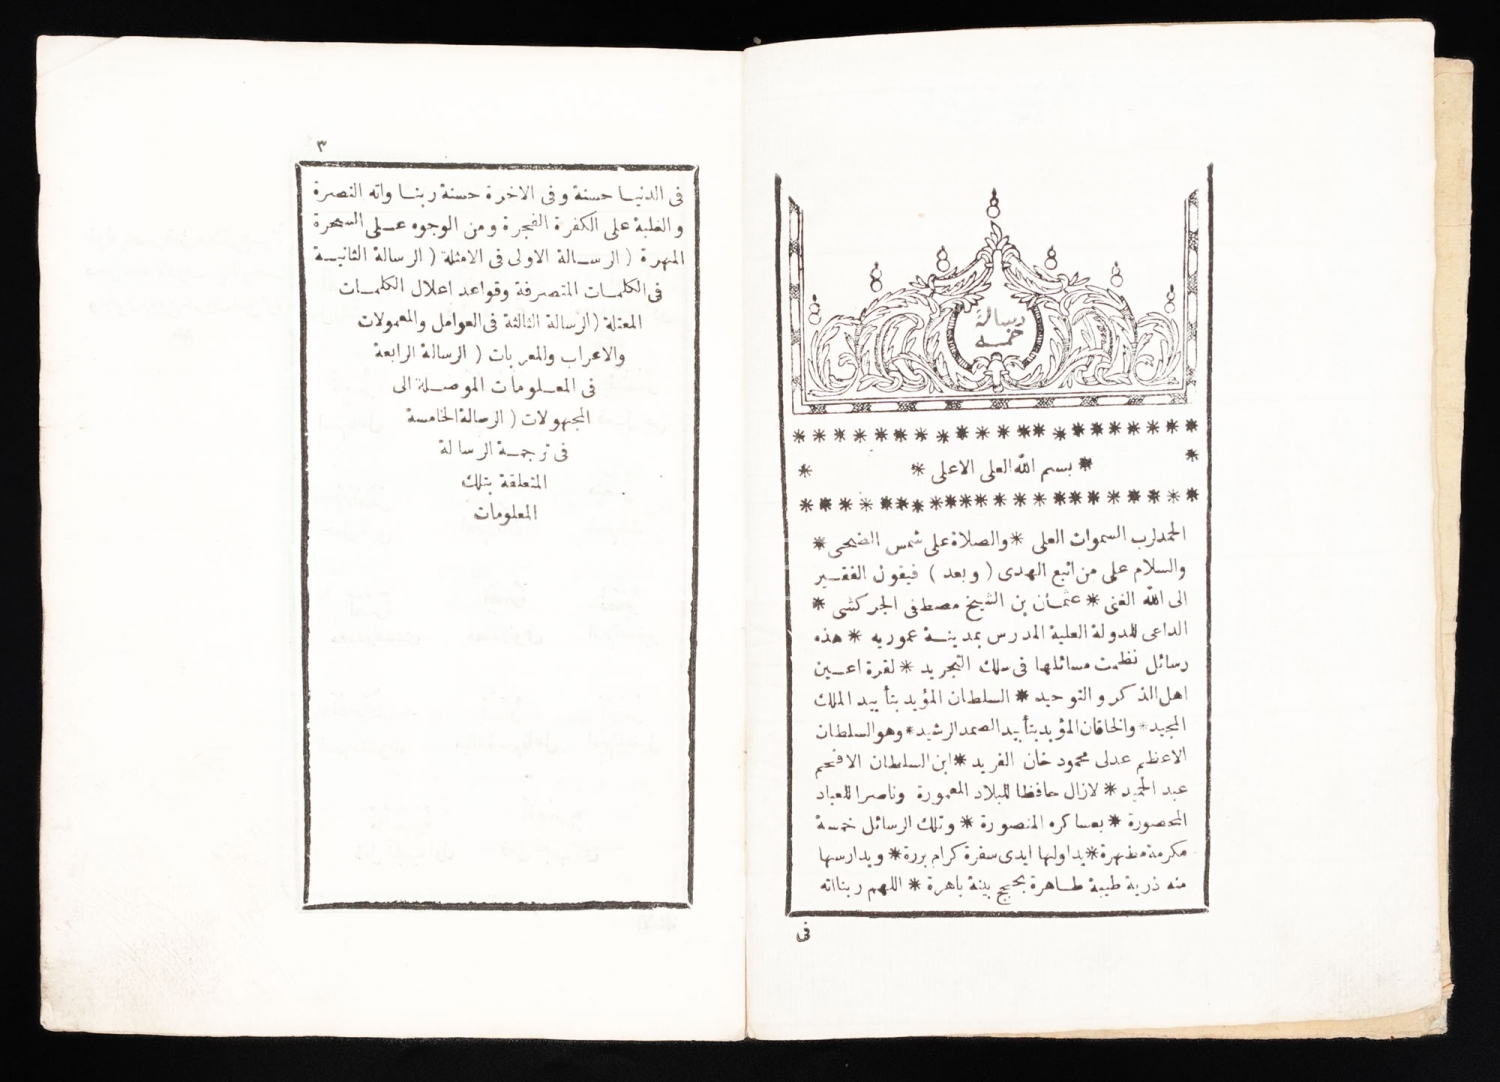 رسالة
خمسه
✷ بسم الله العلى الاعلى ✷
الحمد لرب السموات العلى ✷ والصلاة على شمس الضحى ✷
والسلام على من اتبع الهدى ( وبعد ) فيقول الفقير
الى الله الغنى ✷ عثمان بن الشيخ مصطفى الجركشى ✷
الداعى للدولة العلية المدرس بمدينة عموريه ✷ هذه
رسائل نظمت مسائلها فى سلك التجريد ✷ لقرة اعين
اهل الذكر والتوحيد ✷ السلطان المؤيد بتأييد الملك
المجيد ✷ والخاقان المؤيد بتأييد الصمد الرشيد ✷ وهو السلطان
الاعظم عدلى محمود خان الفريد ✷ ابن السلطان الافخم
عبد الحميد ✷ لازال حافظا للبلاد المعمورة وناصرا للعباد
المحصورة ✷ بعساكره المنصورة ✷ وتلك الرسائل خمسة
مكرمة مطهرة ✷ يداولها ايدى سفرة كرام بررة ✷ ويدارسها
منه ذرية طيبة طاهرة بحجج بينة باهرة ✷ اللهم ربنا اته
فى
٣
فى الدنيا حسنة وفى الاخرة حسنة ربنا واته النصرة
والغلبة على الكفرة الفجرة ومن الوجوه على السحرة
المهرة ( الرسالة الاولى فى الامثلة ( الرسالة الثانية
فى الكلمات المتصرفة وقواعد اعلال الكلمات
المعتلة ( الرسالة الثالثة فى العوامل والمعمولات
والاعراب والمعربات ( الرسالة الرابعة
فى المعلومات الموصلة الى
المجهولات ( الرسالة الخامسة
فى ترجمة الرسالة
المتعلقة بتلك
المعلومات